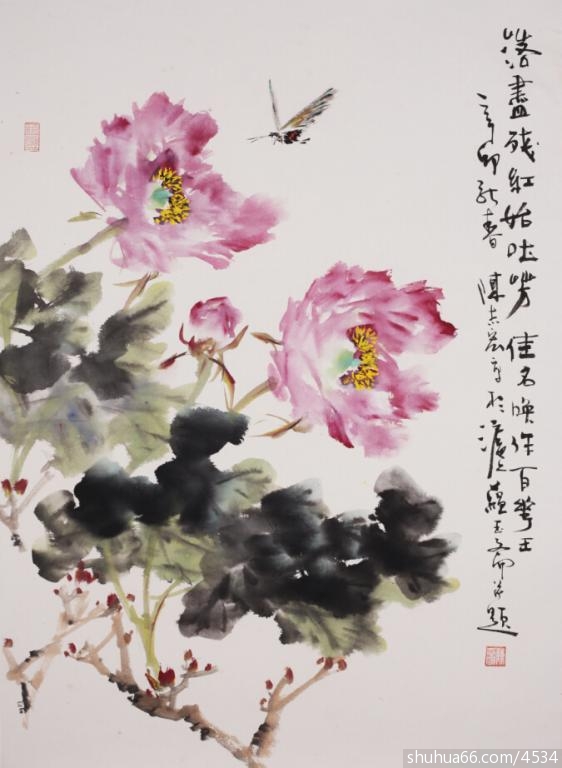 落盡殘紅始吐芳 佳名喚作百花王
辛卯新春 陳志宏寫於滬上蘊玉齋并題
shuhua66.com/4534